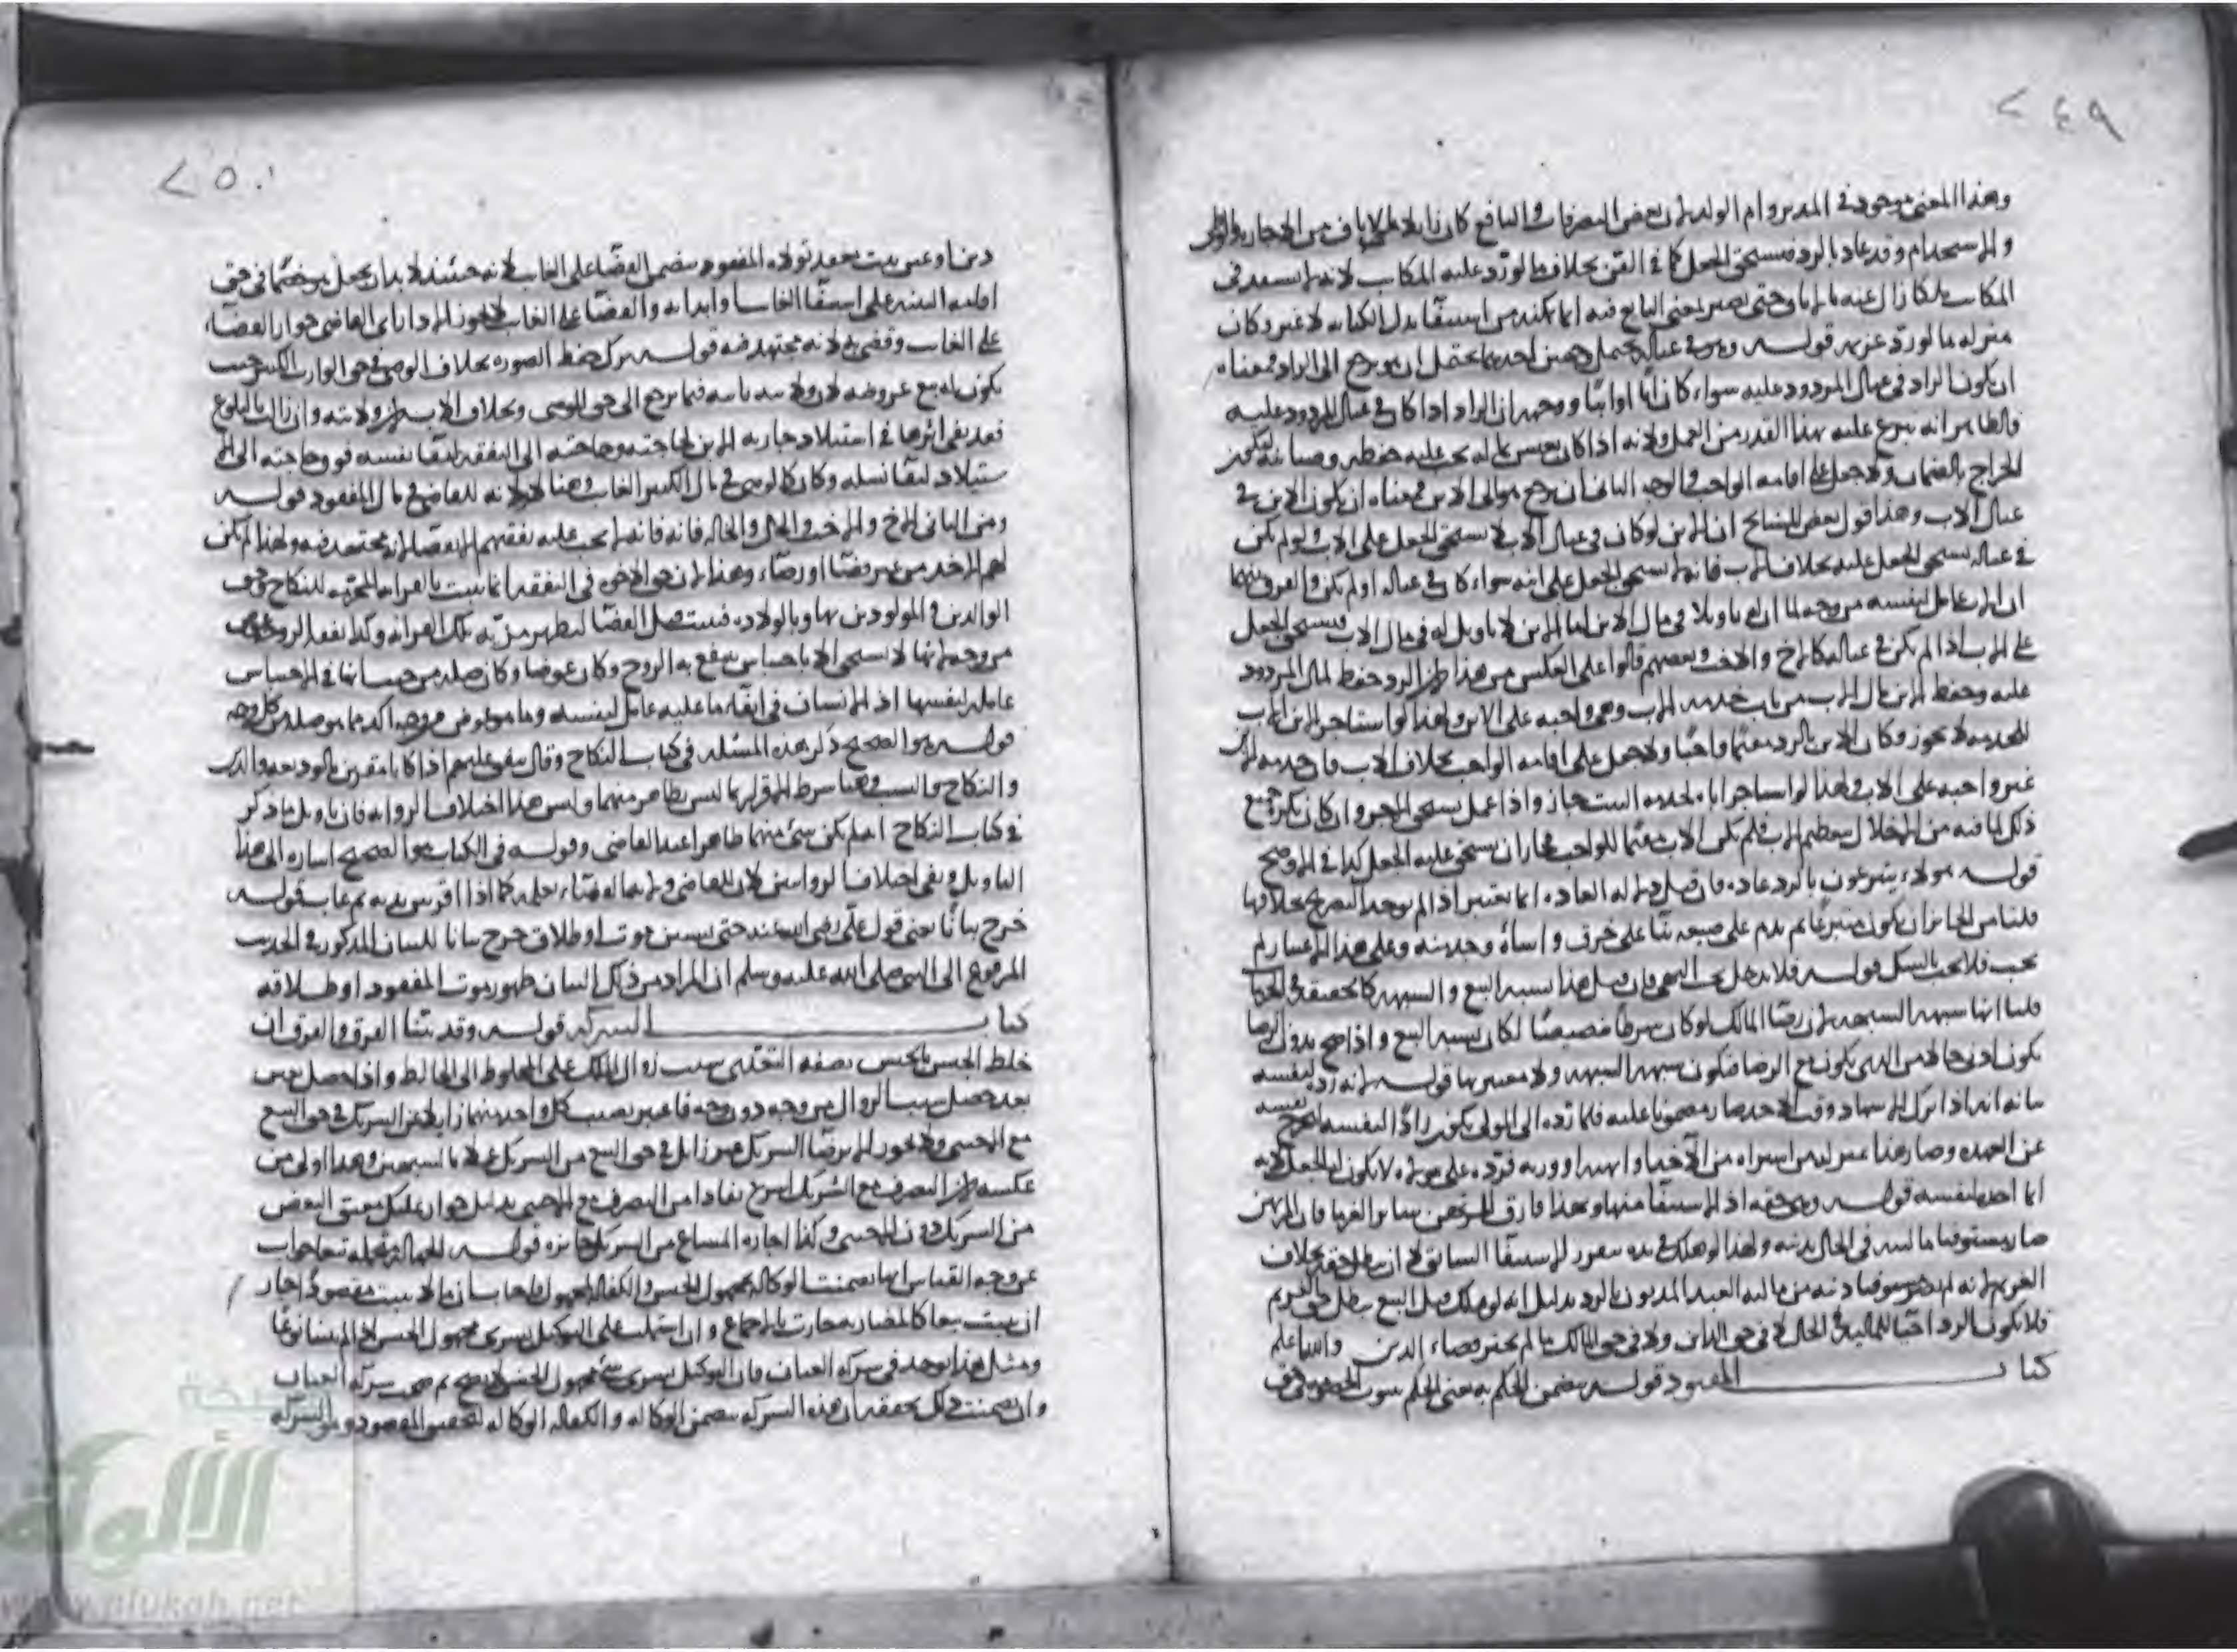 ٢٤٩
وهذا المعنى موجود في المدبر وام الولد لان بعض التصرفات والمنافع كان زايلا بالاباق من الاجارة
والاستخدام وقد عاد بالرد فيستحق الجعل كما في القن بخلاف ما لو رد عليه المكاتب لانه لم يستفد في
المكاتب ملكا زال عنه بالاباق حتى يصير بمعنى البايع فيه انما تمكنه من استيفا بدل الكتابة لا غير وكان
بمنزلة ما لو رد غريمه قوله وهو في عياله يحتمل وجهين احدهما يحتمل ان هو يرجع الى الراد فمعناه
ان يكون الراد في عيال المردود عليه سواء كان ابا او ابنا ووجهه ان الراد اذا كان في عيال المردود عليه
فالظاهر انه تبرع عليه بهذا القدر من العمل ولانه اذا كان يعيش بماله يجب عليه حفظه وصيانته ليكون
الخراج بالضمان ولا جعل على اقامة الواجب والوجه الثاني ان يرجع هو الى الابن فمعناه ان يكون الابن في
عيال الاب وهذا قول بعض المشايخ ان الابن لو كان في عيال الاب لا يستحق الجعل على الاب ولو لم يكن
في عياله يستحق الجعل عليه بخلاف الاب فانه لا يستحق الجعل على ابنه سواء كان في عياله او لم يكن والفرق بينهما
ان الاب عامل لنفسه من وجه لما ان له تاويلا في مال الابن اما الابن لا تاويل له في مال الاب فيستحق الجعل
على الاب اذا لم يكن في عياله كالاخ والاخت وبعضهم قالوا على العكس من هذا لان الرد حفظ لمال المردود
عليه وحفظ الابن مال الاب من باب خدمة الاب وهي واجبة على الابن ولهذا لو استاجر الابن الاب
للخدمة لا يجوز وكان الابن بالرد مقيما واجبا ولا جعل على اقامة الواجب بخلاف الاب فان خدمة الابن
غير واجبة على الاب ولهذا لو استاجر اباه لخدمة البيت جاز واذا عمل يستحق الاجر وان كان يكره جميع
ذلك لما فيه من الاخلال بتعظيم الاب فلم يكن الاب مقيما للواجب فجاز ان يستحق عليه الجعل كذا في الاوضح
قوله هولاء يتبرعون بالرد عادة فان قيل دلالة العادة انما يعتبر اذا لم يوجد التصريح بخلافها
قلنا من الجايز ان يكون متبرعا ثم يندم على صنيعه بناء على خرف واساءة وجدت منه وعلى هذا الاعتبار لم
يجب فلا يجب بالشك قوله فلا يدخل تحت النهي فان قيل هذا شبيه البيع والشبهة كالحقيقة في الحرمات
قلنا انها شبهة الشبهة لان رضا المالك لو كان شرطا فصيعتا لكان شبيه البيع واذا صح بدون الرضا
يكون ادنى حالا من الذي يكون مع الرضا فيكون شبهة الشبهة ولا معتبر بها قوله لانه رده لنفسه
بيانه انه اذا ترك الاشهاد وقت الاخذ صار مضمونا عليه فلما رده الى المولى يكون رادا لنفسه ليخرج
عن العهدة وصار هذا بمنزلة من اشتراه من الآخذ او اتهبه او ورثه فرده على مولاه لا يكون له الجعل لانه
انما اخذه لنفسه قوله وهي حقه اذ الاستيفا منها وبهذا فارق المرتهن سائر الغرما فان المرتهن
صار مستوفيا ماليته في الحال بدينه ولهذا لو هلك في يده يتقرر الاستيفا السابق لا ان يبطل حقه بخلاف
الغريم لانه لم يصر مستوفيا دينه من مالية العبد المديون بالرد بدليل انه لو هلك قبل البيع يبطل حق الغريم
فلا يكون الرد احيا للمالية في الحال لا في حق الدائن ولا في حق المالك ما لم يختر قضاء الدين والله اعلم
كتاب المفقود قوله يتضمن الحكم به يعني الحكم بثبوت الخصومة
٢٥٠
دين او عين يثبت بعقد تولاه المفقود يتضمن القضاء على الغايب لانه حينئذ لا بد ان يجعل هو خصما في حق
اقامة البينة على استيفا الغايب وابرائه والقضاء على الغايب لا يجوز الا اذا راى القاضي جواز القضاء
على الغايب وقضى به لانه مجتهد فيه قوله ترك حفظ الصورة بخلاف الوصي في حق الوارث الكبير حيث
يكون له بيع عروضه لان ولايته ثابتة فيما يرجع الى حق الموصي وبخلاف الاب لان ولايته وان زال بالبلوغ
فقد بقي اثرها في استيلاد جارية الابن لحاجته وحاجته الى النفقة لبقاء نفسه فوق حاجته الى الا
ستيلاد لبقا نسله وكان كالوصي في مال الكبير الغايب وهنا لا ولاية للقاضي في مال المفقود قوله
ومن الثاني الاخ والاخت والخال والخالة فانه فانه لا يجب عليه نفقتهم الا بقضا لانه مجتهد فيه ولهذا لم يكن
لهم الاخذ من غير قضا او رضا، وهذا لان حق الاخ في النفقة انما يثبت بالقرابة المحرمة للنكاح وحق
الوالدين والمولودين بها وبالولادة فيثبت قبل القضا ليظهر مزية تلك القرابة وكذا نفقة الزوجة عوض
من وجه لانها لا تستحق الا باحتباس ينتفع به الزوج وكان عوضا وكان صلة من حيث انها في الاحتباس
عاملة لنفسها اذ الانسان في ابقاء ما عليه عامل لنفسه وما هو عوض من وجه اكد مما هو صلة من كل وجه
قوله هو الصحيح ذكر هذه المسئلة في كتاب النكاح وقال ينفق عليهم اذا كانا مقرين بالوديعة والدين
والنكاح والنسب وهنا شرط الاقرار بما ليس بظاهر منهما وليس هذا اختلاف الرواية فان تاويل ما ذكر
في كتاب النكاح اذا لم يكن شئ منهما ظاهرا عند القاضي وقوله في الكتاب هو الصحيح اشارة الى هذا
التاويل ونفي اختلاف الروايتين
خرج بيانا يعني قول علي رضي الله عنه حتى يستبين موت او طلاق خرج بيانا للبيان المذكور في الحديث
المرفوع الى النبي صلى الله عليه وسلم ان المراد من ذلك البيان ظهور موت المفقود او طلاقه
كتاب الشركة قوله وقد بينا الفرق والفرق ان
خلط الجنس بالجنس بصفة التعدي سبب زوال الملك على المخلوط الى الخالط واذا حصل بغير
تعد حصل سبب الزوال من وجه دون وجه فاعتبر نصيب كل واحد منهما زايلا عن الشريك في حق البيع
مع الاجنبي ولا يجوز الا برضا الشريك غير زايل في حق البيع من الشريك عملا بالشبهين وهذا اولى من
عكسه لان التصرف مع الشريك اسرع نفاذا من التصرف مع الاجنبي بدليل جواز تمليك معتق البعض
من الشريك دون الاجنبي وكذا اجارة المشاع من الشريك جائزة قوله الجهالة متحملة تبعا جواب
عن وجه القياس انها تضمنت الوكالة بمجهول الجنس والكفالة بمجهول فاجاب بان ما لا يثبت مقصودا جاز
ان يثبت تبعا كالمضاربة جازت بالاجماع وان اشتملت على التوكيل بشرى مجهول الجنس
ومثل هذا يوجد في شركة العنان فان التوكيل بشرى شئ مجهول الجنس لا يصح ثم صحت شركة العنان
وان تضمنت ذلك تحقيقه ان هذه الشركة تتضمن الوكالة والكفالة
الألوكة
www.alukah.net